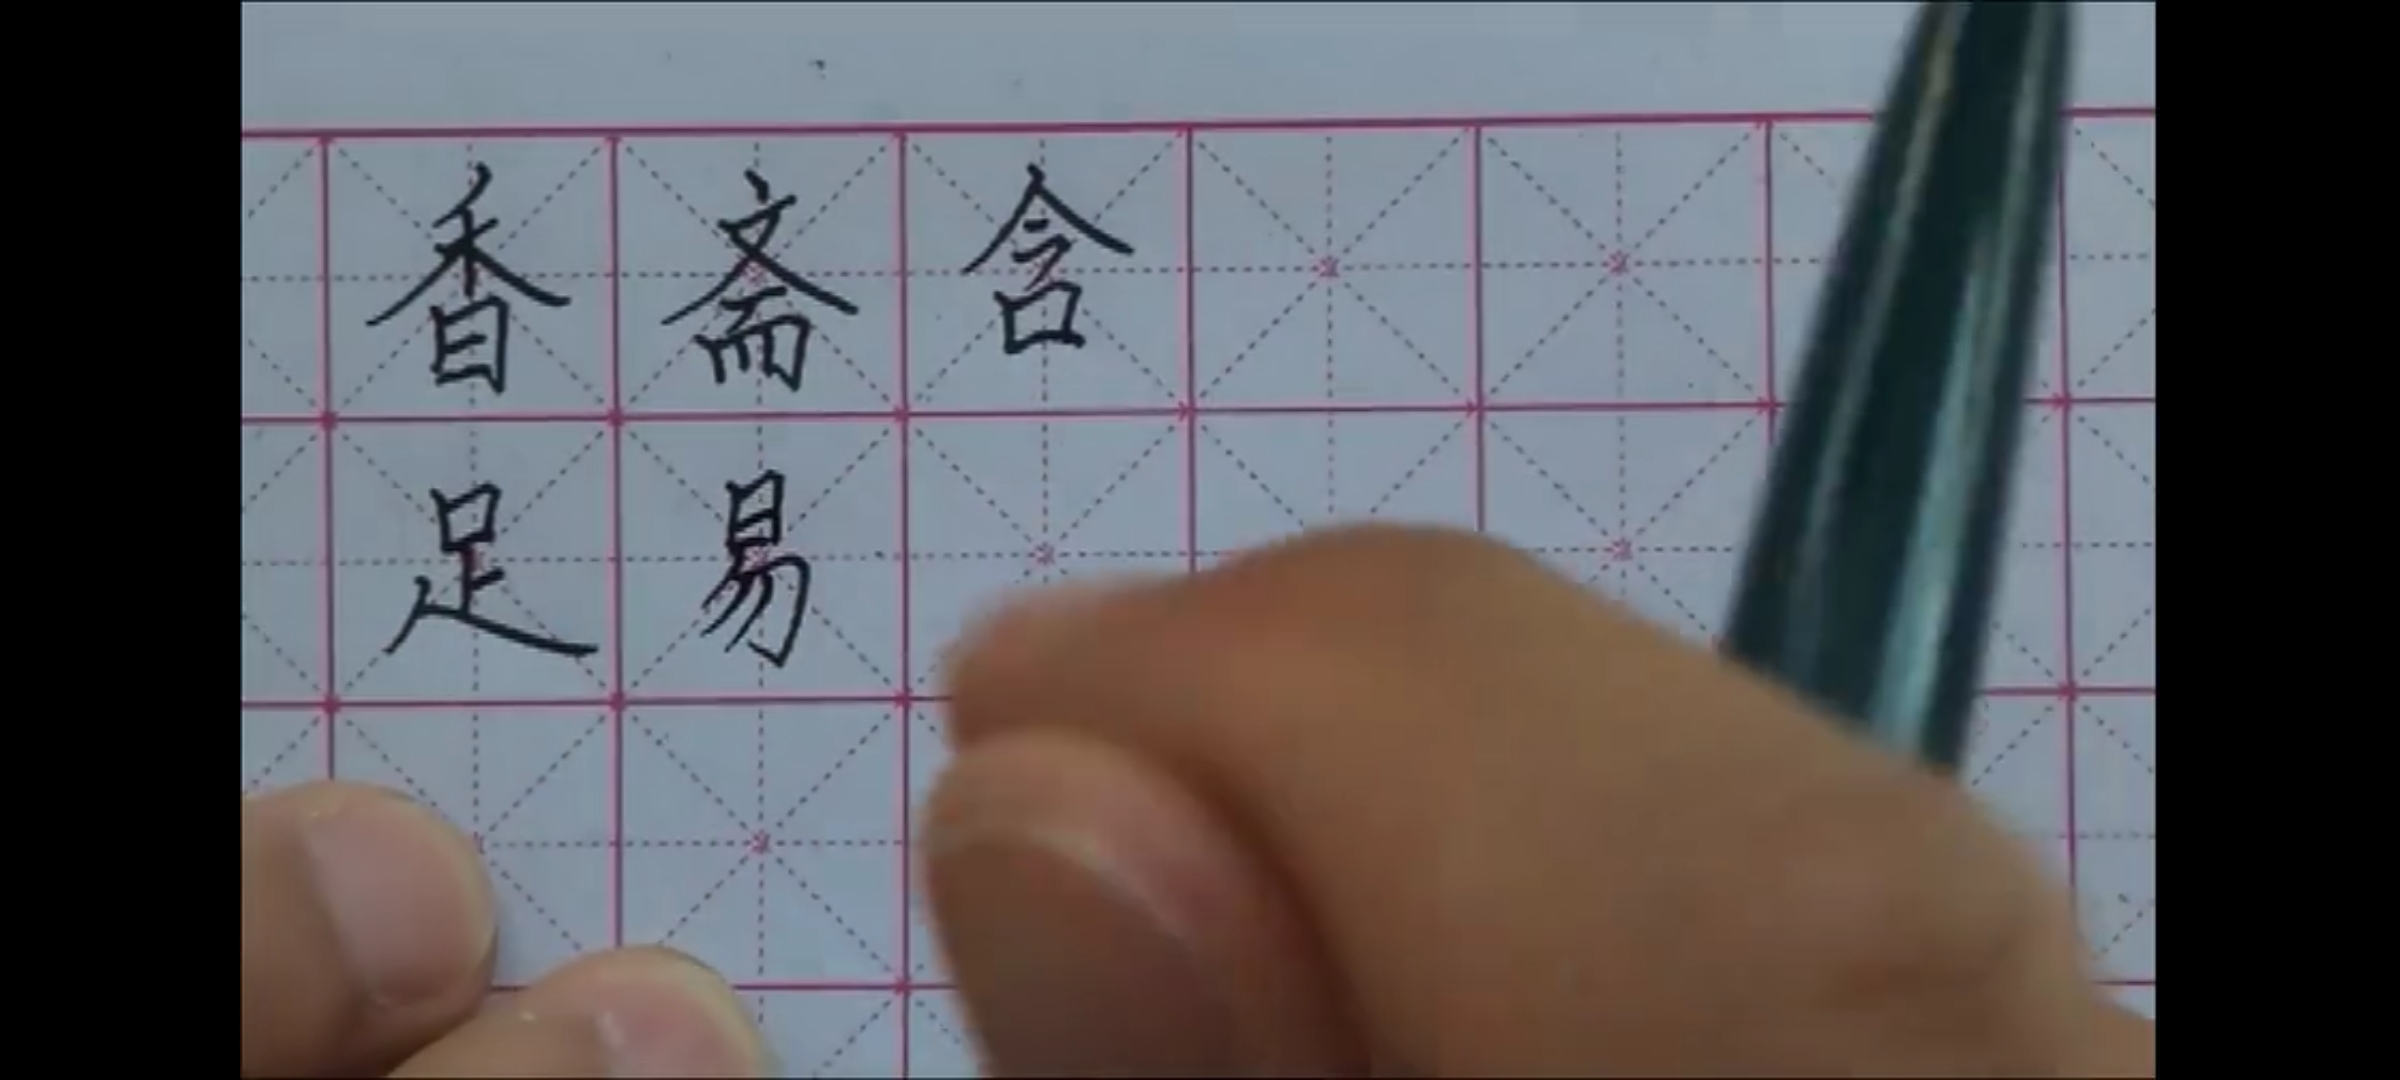 香斋含
足易